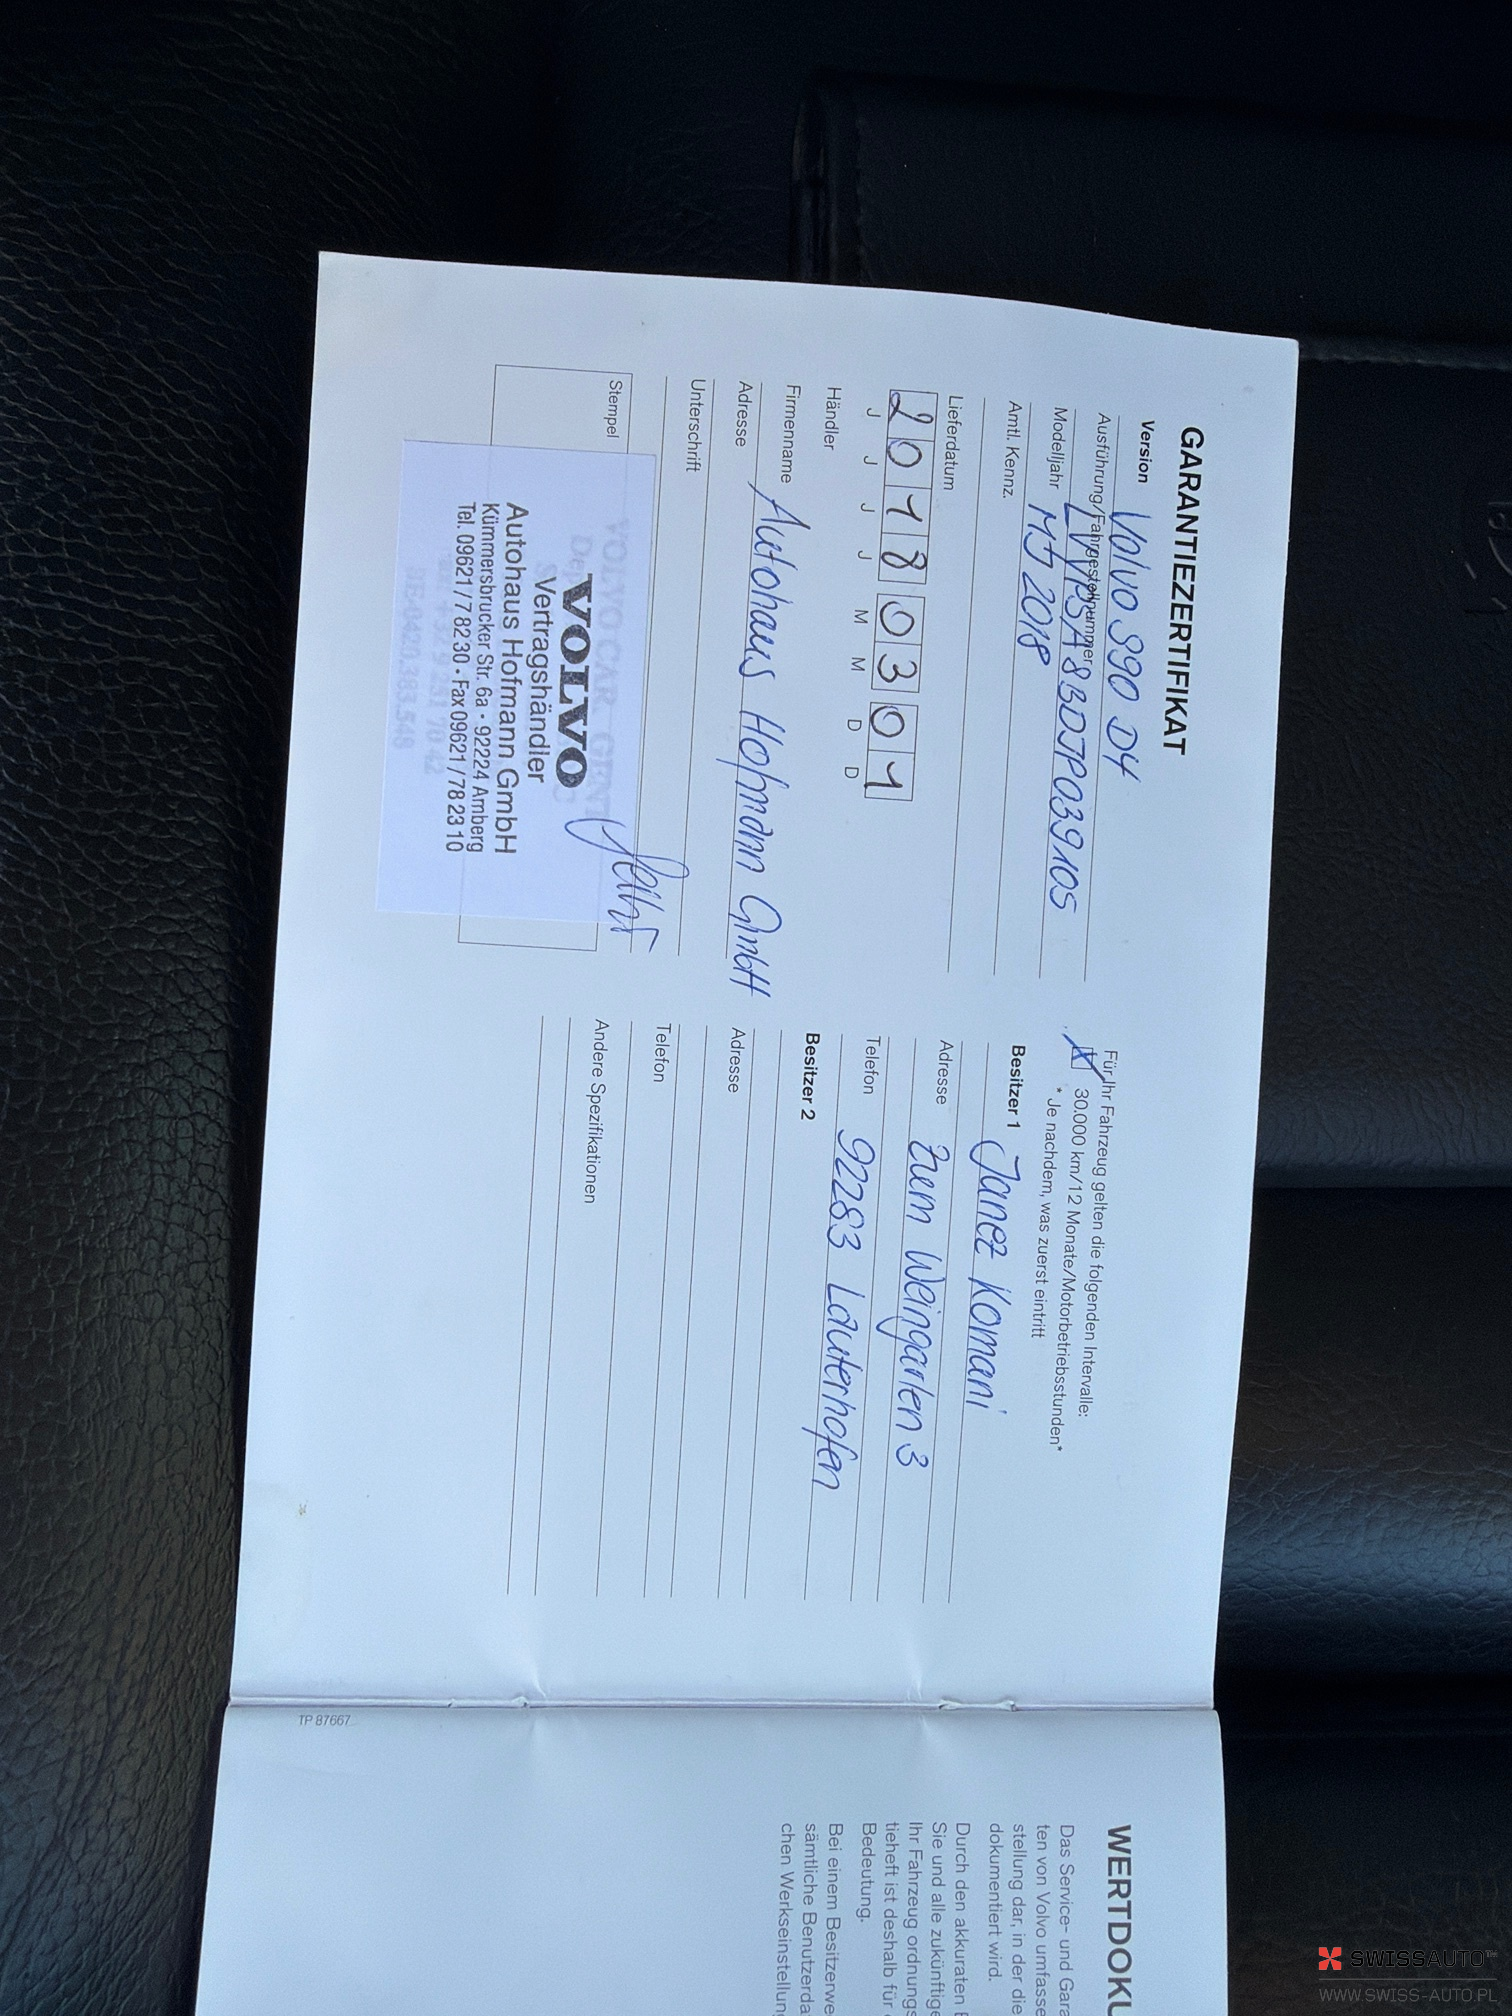 GARANTIEZERTIFIKAT
Version Volvo S90 D4
Ausführung/Fahrgestellnummer LVYPSA8BDJP039105
Modelljahr MJ 2018
Amtl. Kennz.
Lieferdatum
2 0 1 8 0 3 0 1
J J J J M M D D
Händler
Firmenname Autohaus Hofmann GmbH
Adresse
Unterschrift
Stempel
VOLVO
Vertragshändler
Autohaus Hofmann GmbH
Kümmersbrucker Str. 6a • 92224 Amberg
Tel. 09621 / 7 82 30 • Fax 09621 / 78 23 10
VOLVO CAR GENT
Für Ihr Fahrzeug gelten die folgenden Intervalle:
X 30.000 km/12 Monate/Motorbetriebsstunden*
* Je nachdem, was zuerst eintritt
Besitzer 1 Janez Komani
Adresse Zum Weingarten 3
Telefon 92283 Lauterhofen
Besitzer 2
Adresse
Telefon
Andere Spezifikationen
TP 87667
WERTDOKU
Das Service- und Gara
ten von Volvo umfasse
stellung dar, in der die
dokumentiert wird.
Durch den akkuraten E
Sie und alle zukünftige
Ihr Fahrzeug ordnungs
tieheft ist deshalb für
Bedeutung.
Bei einem Besitzerwe
sämtliche Benutzerda
chen Werkseinstellun
SWISSAUTO
WWW.SWISS-AUTO.PL